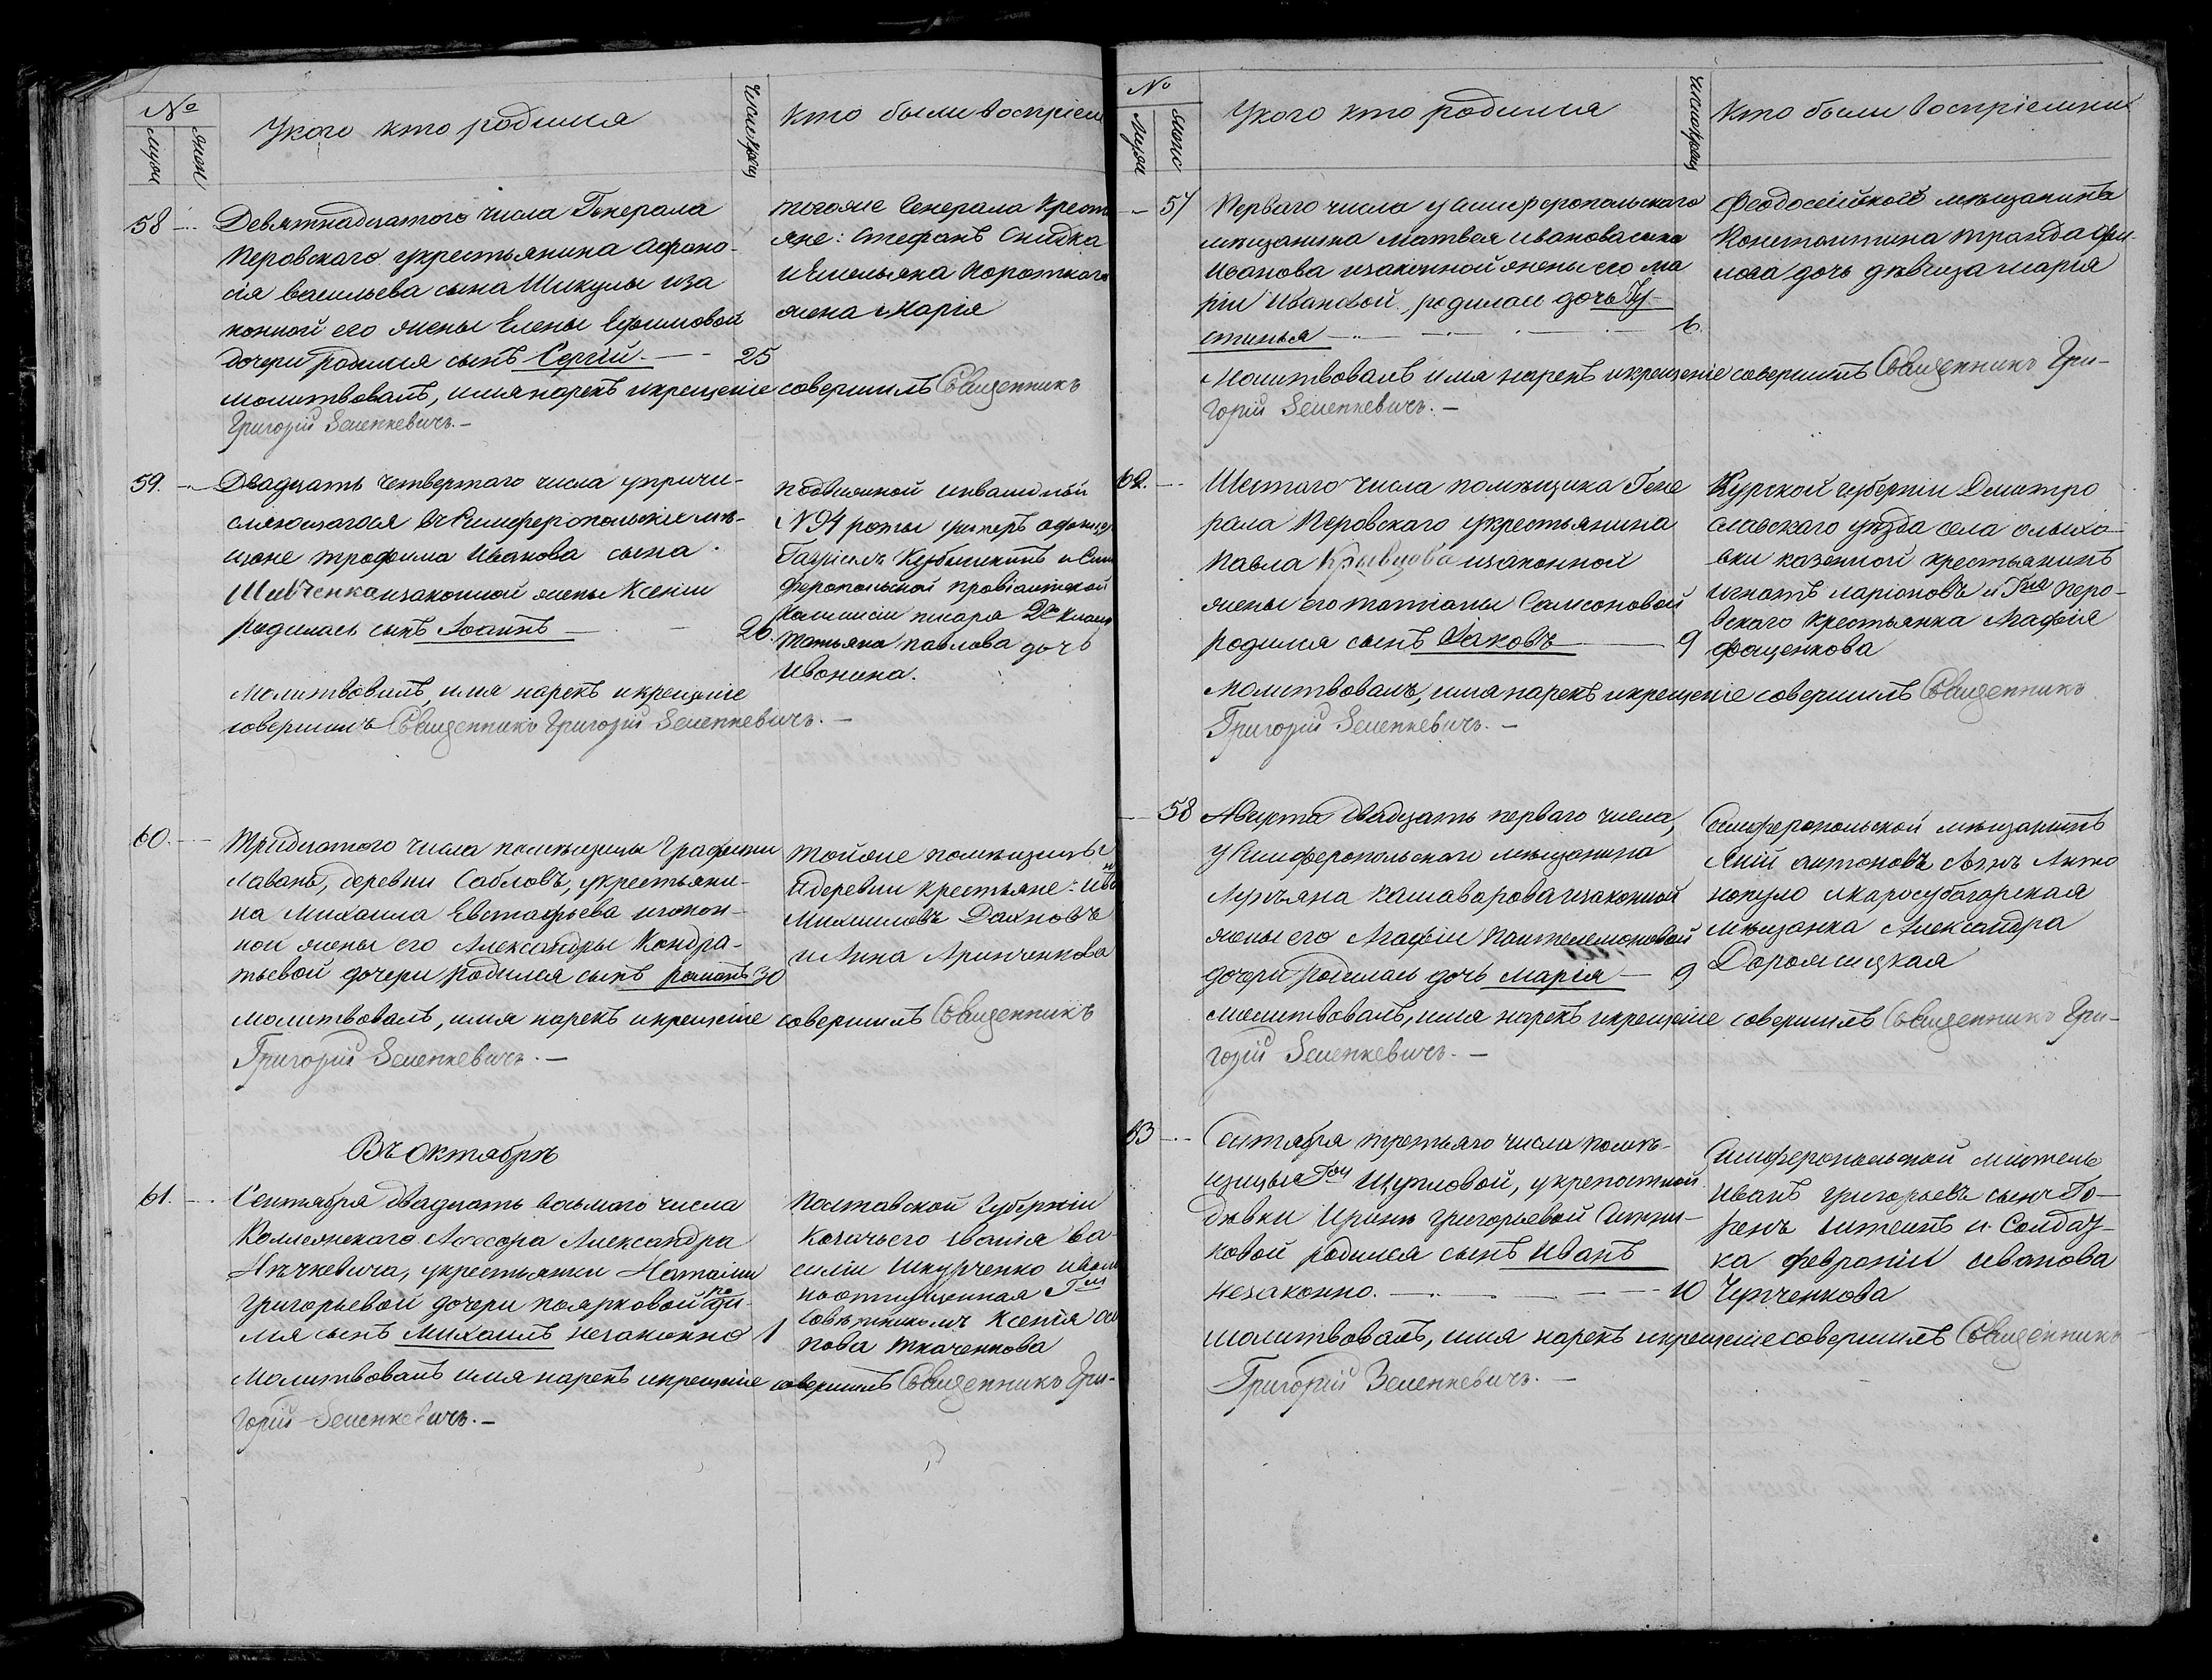 №
Муж
Жен
У кого кто родился
Число крещ
Кто были воспріем
58
Девятнадцатого числа Генерала
Перовскаго у крестьянина Афона-
сія Васильева сына Шикулы и за
конной его жены Елены Ефимовой
дочери родился сынъ Сергій 25
тогоже Генерала крест
яне: Стефанъ Снидка
и Емельяна Короткаго
жена Марія
молитвовалъ, имя нарекъ и крещеніе совершилъ Священникъ
Григорій Зеленкевичъ.
59.
Двадцать четвертаго числа у причи-
сляющагося въ Симферопольскіе мѣ-
щане Трофима Иванова сына
Шивченка и законной жены Ксеніи
родилась сынъ Іоаннъ 26.
подвижной инвалидный
№ 94 роты
Гавріилъ и Сим
феропольской провіантской
Коммисіи писаря 2го класса
Татьяна Павлова дочь
Ивонина.
Молитвовалъ, имя нарекъ и крещеніе
совершилъ Священникъ Григорій Зеленкевичъ.
60.
Тридцатого числа помѣщицы Графини
Лаваль, деревни Рабловъ, у крестьяни-
на Михаила Евстафьева и закон-
ной жены его Александры Кондра-
тьевой дочери родился сынъ Романъ 30
тойже помѣщицы
и деревни крестьяне: Ива
Михайловъ Дахновъ
и Анна Аринченкова
молитвовалъ, имя нарекъ и крещеніе совершилъ Священникъ
Григорій Зеленкевичъ.
Въ Октябрѣ
61.
Сентября двадцать восьмого числа
Коллежскаго Ассесора Александра
Нѣчкевича, у крестьянки Наталіи
Григорьевой дочери Поярковой роди-
лся сынъ Михаилъ незаконно 1
Полтавской Губерніи
Козачьего званія Ва-
силій Шкурченко и вол
но отпущенная Гжи
Ксенія
пова Ткаченкова
Молитвовалъ имя нарекъ и крещеніе совершилъ Священникъ Гри-
горій Зеленкевичъ.
№
Муж
Женс
У кого кто родился
Число крещ
Кто были воспріемник
57
Перваго числа у Симферопольскаго
мѣщанина Матвея Иванова сына
Иванова и законной жены его Ма
ріи Ивановой, родилась дочь Іу-
стинья 6.
Феодосійской мѣщанинъ
Константина Трандафи-
лова дочь дѣвица Марія
Молитвовалъ имя нарекъ и крещеніе совершилъ Священникъ Гри-
горій Зеленкевичъ.
62.
Шестаго числа помѣщика Гене
рала Перовскаго у крестьянина
Павла Крывцова и законной
жены его Татіаны Самсоновой
родился сынъ Іаковъ 9
Курской губерніи Дмитро
славскаго уѣзда села Ольхо-
вки казенной крестьянинъ
Игнатъ Ларіоновъ и Гна Перо-
вскаго крестьянка Агафія
Фащенкова
Молитвовалъ, имя нарекъ и крещеніе совершилъ Священникъ
Григорій Зеленкевичъ.
58
Августа двадцать перваго числа,
у Симферопольскаго мѣщанина
Лукъяна Кашаварова и законной
жены его Агафіи Пантелемоновой
дочери родилась дочь Марія 9
Симферопольской мѣщанинъ
Яній Антоновъ сынъ Анто
нопуло и Карасубазарская
мѣщанка Александра
Дорожицкая
молитвовалъ, имя нарекъ и крещеніе совершилъ Священникъ Гри-
горій Зеленкевичъ.
63
Сентября третьяго числа помѣ-
щицы Гжи Шутловой, у крепостной
дѣвки Ирины Григорьевой
ковой родился сынъ Иванъ
незаконно. 10
Симферопольской житель
Иванъ Григорьевъ сынъ Го-
и Солдат-
ка Февронія Иванова
Чупченкова
молитвовалъ, имя нарекъ и крещеніе совершилъ Священникъ
Григорій Зеленкевичъ.